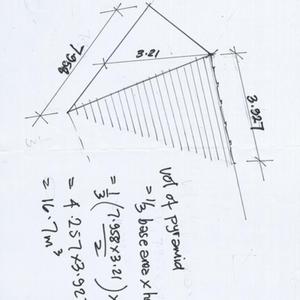 7.958
3.21
3.927
vol of pyramid
= 1/3 base area x h
= 1/3 (7.958 x 3.21 / 2) x
= 4.257 x 3.92
= 16.7 m³